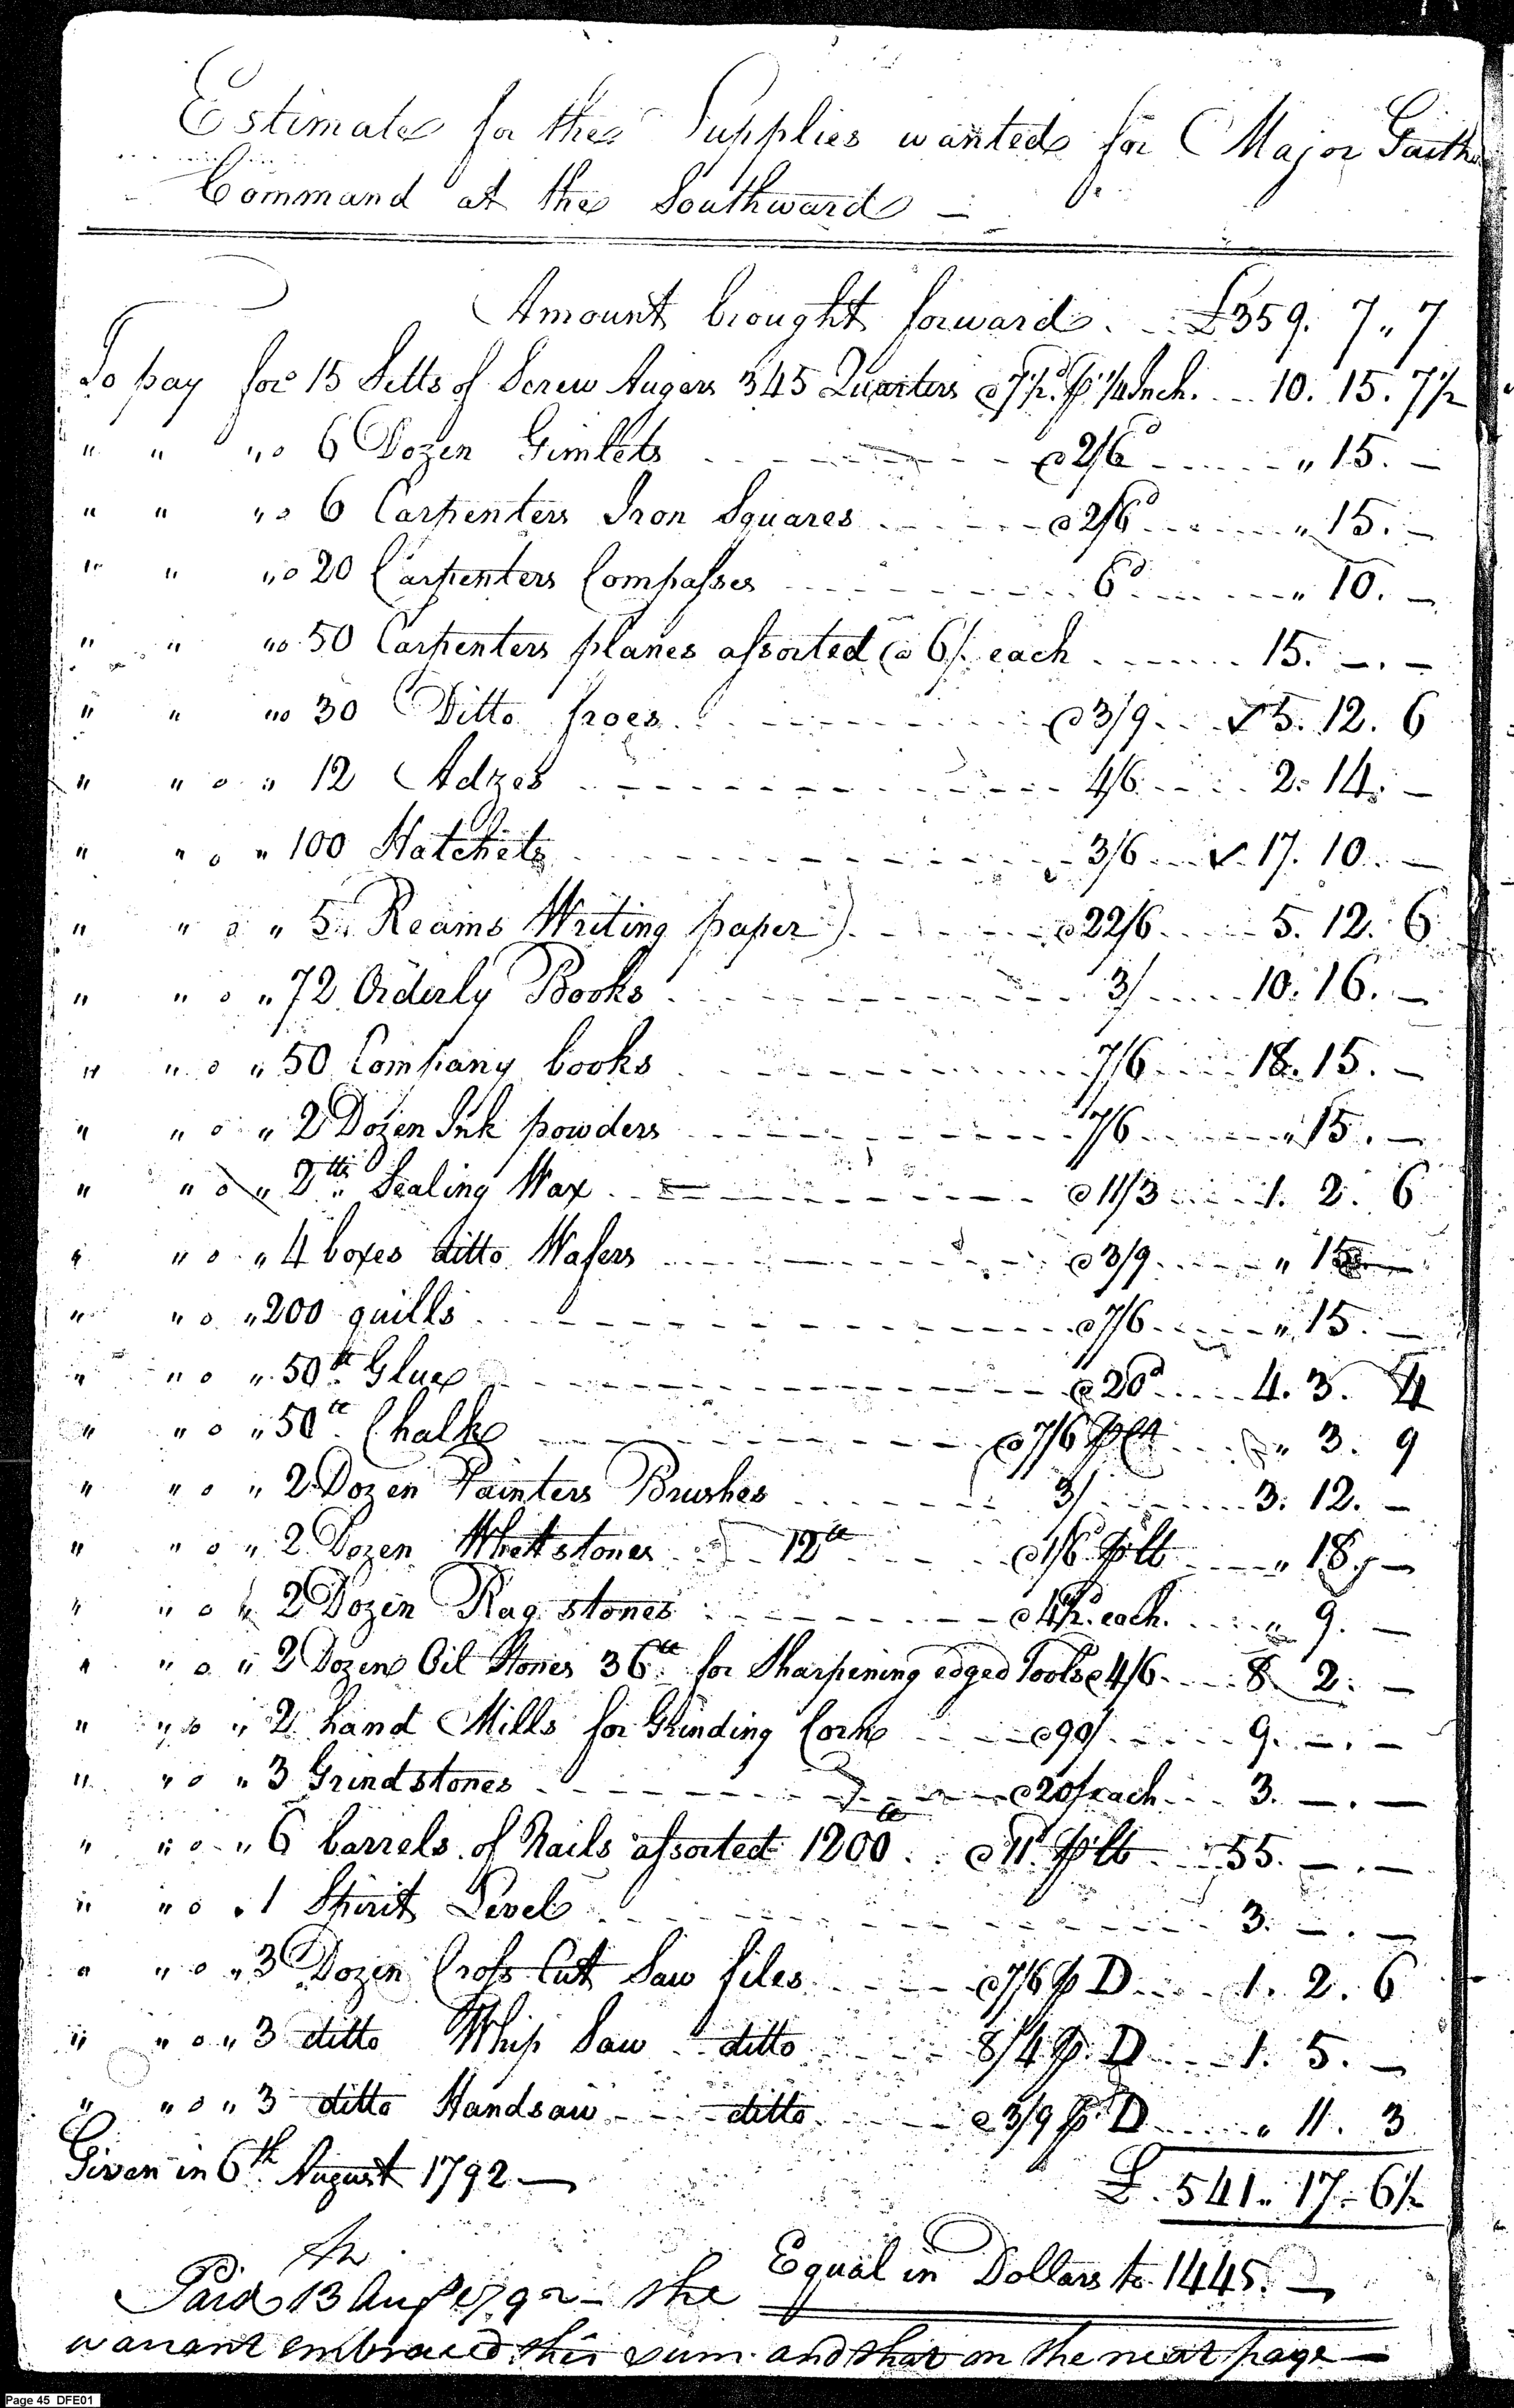 Estimate for the Supplies wanted for Major Gaith
Command at the Southward —
Amount brought forward . . £359. 7 " 7
To pay for 15 Setts of Screw Augers 345 Quarters @ 7½d. p 1/4 Inch. . . 10. 15. 7½
" " " o 6 Dozen Gimlets @ 2/6d " 15. —
" " " o 6 Carpenters Iron Squares @ 2/6d " 15. —
" " " o 20 Carpenters Compasses 6d " 10. —
" " " o 50 Carpenters planes assorted @ 6/. each 15. —. —
" " " o 30 Ditto froes @ 3/9 ✓ 5. 12. 6
" " o " 12 Adzes 4/6 2. 14. —
" " o " 100 Hatchets 3/6 ✓ 17. 10. —
" " o " 5 Reams Writing paper @ 22/6 5. 12. 6
" " o " 72 Orderly Books 3/ 10. 16. —
" " o " 50 Company books 7/6 18. 15. —
" " o " 2 Dozen Ink powders 7/6 " 15. —
" " o " 2 lb. Sealing Wax @ 11/3 1. 2. 6
" " o " 4 boxes ditto Wafers @ 3/9 " 15 —
" " o " 200 quills @ 7/6 " 15. —
" " o " 50 lb. Glue @ 20d 4. 3. 4
" " o " 50 lb. Chalk @ 7/6 p Ct " 3. 9
" " o " 2 Dozen Painters Brushes 3/ 3. 12. —
" " o " 2 Dozen Whettstones 12 lb @ 1/6 p lb " 18. —
" " o " 2 Dozen Rag stones @ 4½d. each. " 9. —
" " o " 2 Dozen Oil Stones 36 lb. for Sharpening edged Tools @ 4/6 8 2. —
" " o " 2 hand Mills for Grinding Corn @ 90/ 9. —. —
" " o " 3 Grindstones @ 20/ each 3. —. —
" " o " 6 barrels of Nails assorted 1200 lb @ 11d p lb 55. —. —
" " o " 1 Spirit Level 3. —. —
" " o " 3 Dozen Cross Cut Saw files @ 7/6 p D 1. 2. 6
" " o " 3 ditto Whip Saw ditto 8/4 p. D 1. 5. —
" " o " 3 ditto Handsaw ditto @ 3/9 p. D " 11. 3
Given in 6th August 1792 —
£. 541. 17. 6½
Equal in Dollars to 1445. —
Paid 13 Aug 1792 — the
warrant embraced this sum and that on the next page —
Page 45 DFE01